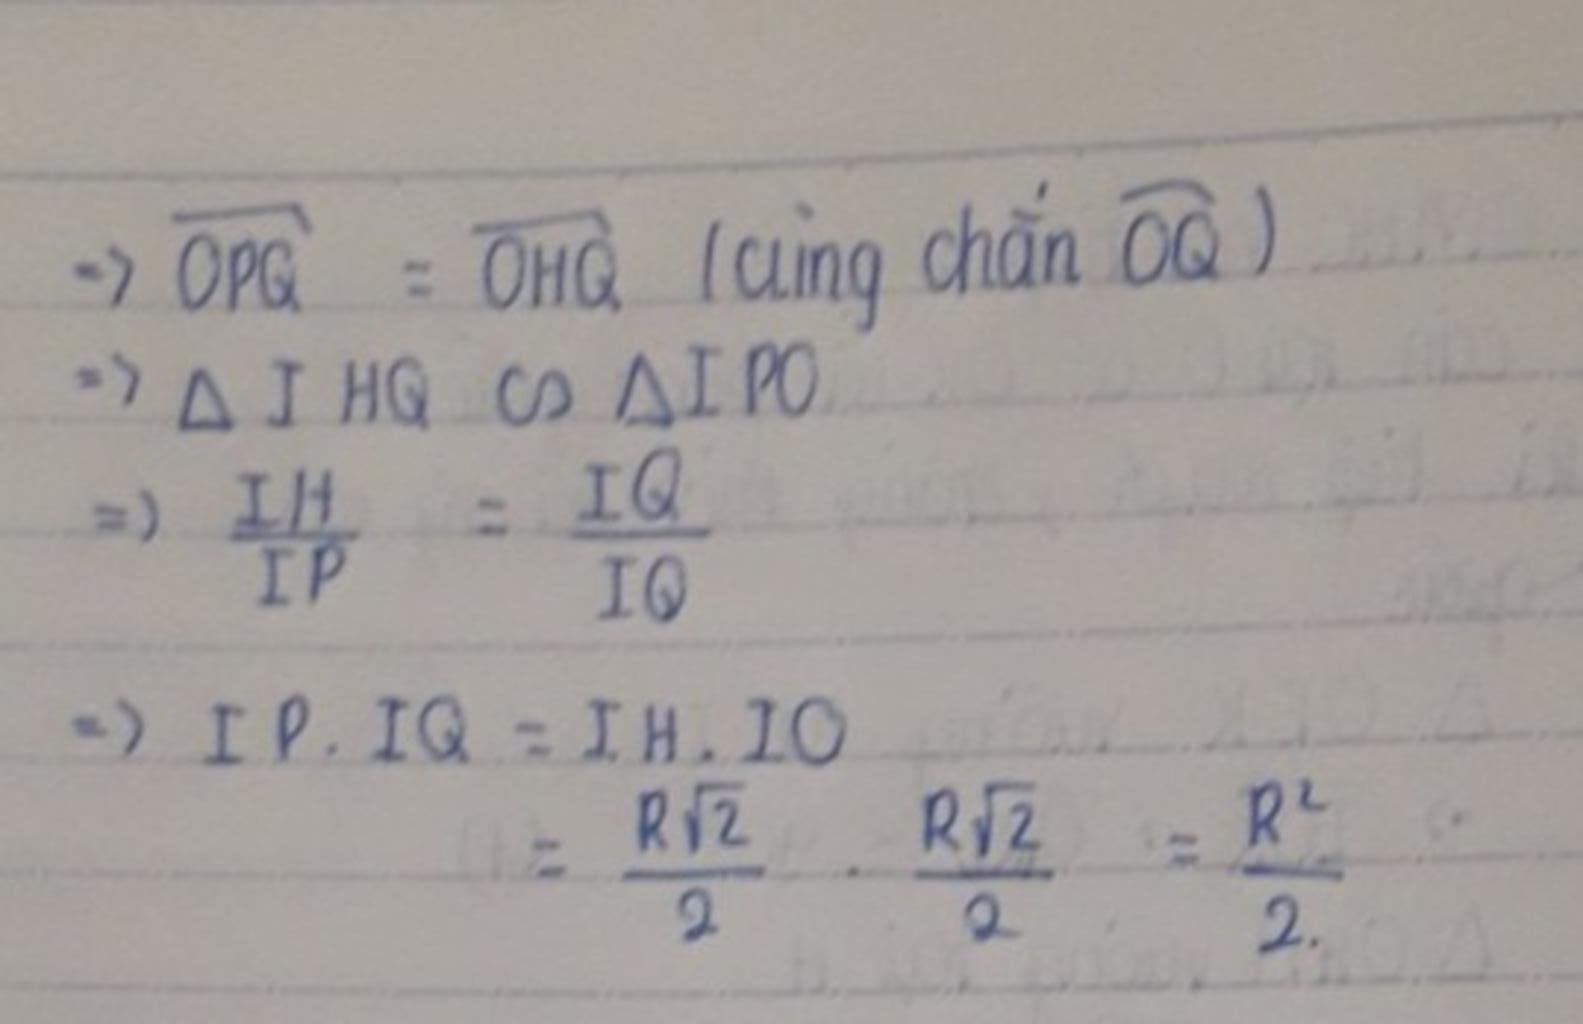 => OPQ = OHQ (cùng chắn OQ)
=> Δ IHQ ∽ ΔIPO
=> IH/IP = IQ/IQ
=> IP. IQ = IH. IO
= R√2/2 . R√2/2 = R²/2.